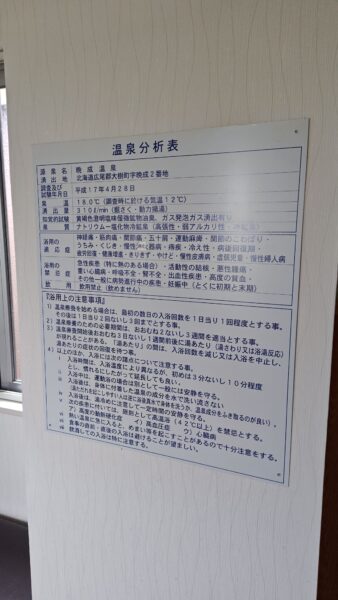 温泉分析表
源泉名 晩成温泉
湧出地 北海道広尾郡大樹町字晩成2番地
調査及び試験年月日 平成17年4月28日
泉温 18.0℃(調査時に於ける気温12℃)
湧出量 310ℓ/min(掘さく・動力揚湯)
知覚的試験 黄褐色澄明塩味僅弱鉱物油臭、ガス発泡ガス湧出有り
泉質 ナトリウム-塩化物冷鉱泉(高張性・弱アルカリ性・
浴用の適応症 神経痛・筋肉痛・関節痛・五十肩・運動麻痺・関節のこわばり・
うちみ・くじき・慢性消化器病・痔疾・冷え性・病後回復期・
疲労回復・健康増進・きりきず・やけど・慢性皮膚病・虚弱児童・慢性婦人病
浴用の禁忌症 急性疾患(特に熱のある場合)・活動性の結核・悪性腫瘍・
重い心臓病・呼吸不全・腎不全・出血性疾患・高度の貧血・
その他一般に病勢進行中の疾患・妊娠中(とくに初期と末期)
飲用 飲用禁止(飲めません)
『浴用上の注意事項』
1)温泉療養を始める場合は、最初の数日の入浴回数を1日当り1回程度とする事。
その後は1日当り2回ないし3回までとする事。
2)温泉療養のための必要期間は、おおむね2ないし3週間を適当とする事。
3)温泉療養開始後おおむね3日ないし1週間前後に湯あたり(湯さわり又は浴湯反応)
が現れることがある。「湯あたり」の間は、入浴回数を減じ又は入浴を中止し、
湯あたりの症状の回復を待つ事。
4)以上のほか、入浴には次の諸点について注意する事。
i 入浴時間は、入浴温度により異なるが、初めは3分ないし10分程度
とし、慣れるにしたがって延長しても良い。
ii 入浴中は、運動浴の場合は別として一般には安静を守る。
iii 入浴後は、身体に付着した温泉の成分を水で洗い流さない
(湯ただれをおこしやすい人は逆に浴後真水で身体を洗うか、温泉成分をふき取るのが良い)。
iv 入浴後は、湯冷めに注意して一定時間の安静を守る。
v 次の疾患については、原則として高温浴(42℃以上)を禁忌とする。
ア)高度の動脈硬化症 イ)高血圧症 ウ)心臓病
vi 熱い温泉に急に入ると、めまい等を起こすことがあるので十分注意をする。
vii 食事の直前・直後の入浴は避けることが望ましい。
viii 飲酒しての入浴は特に注意する。